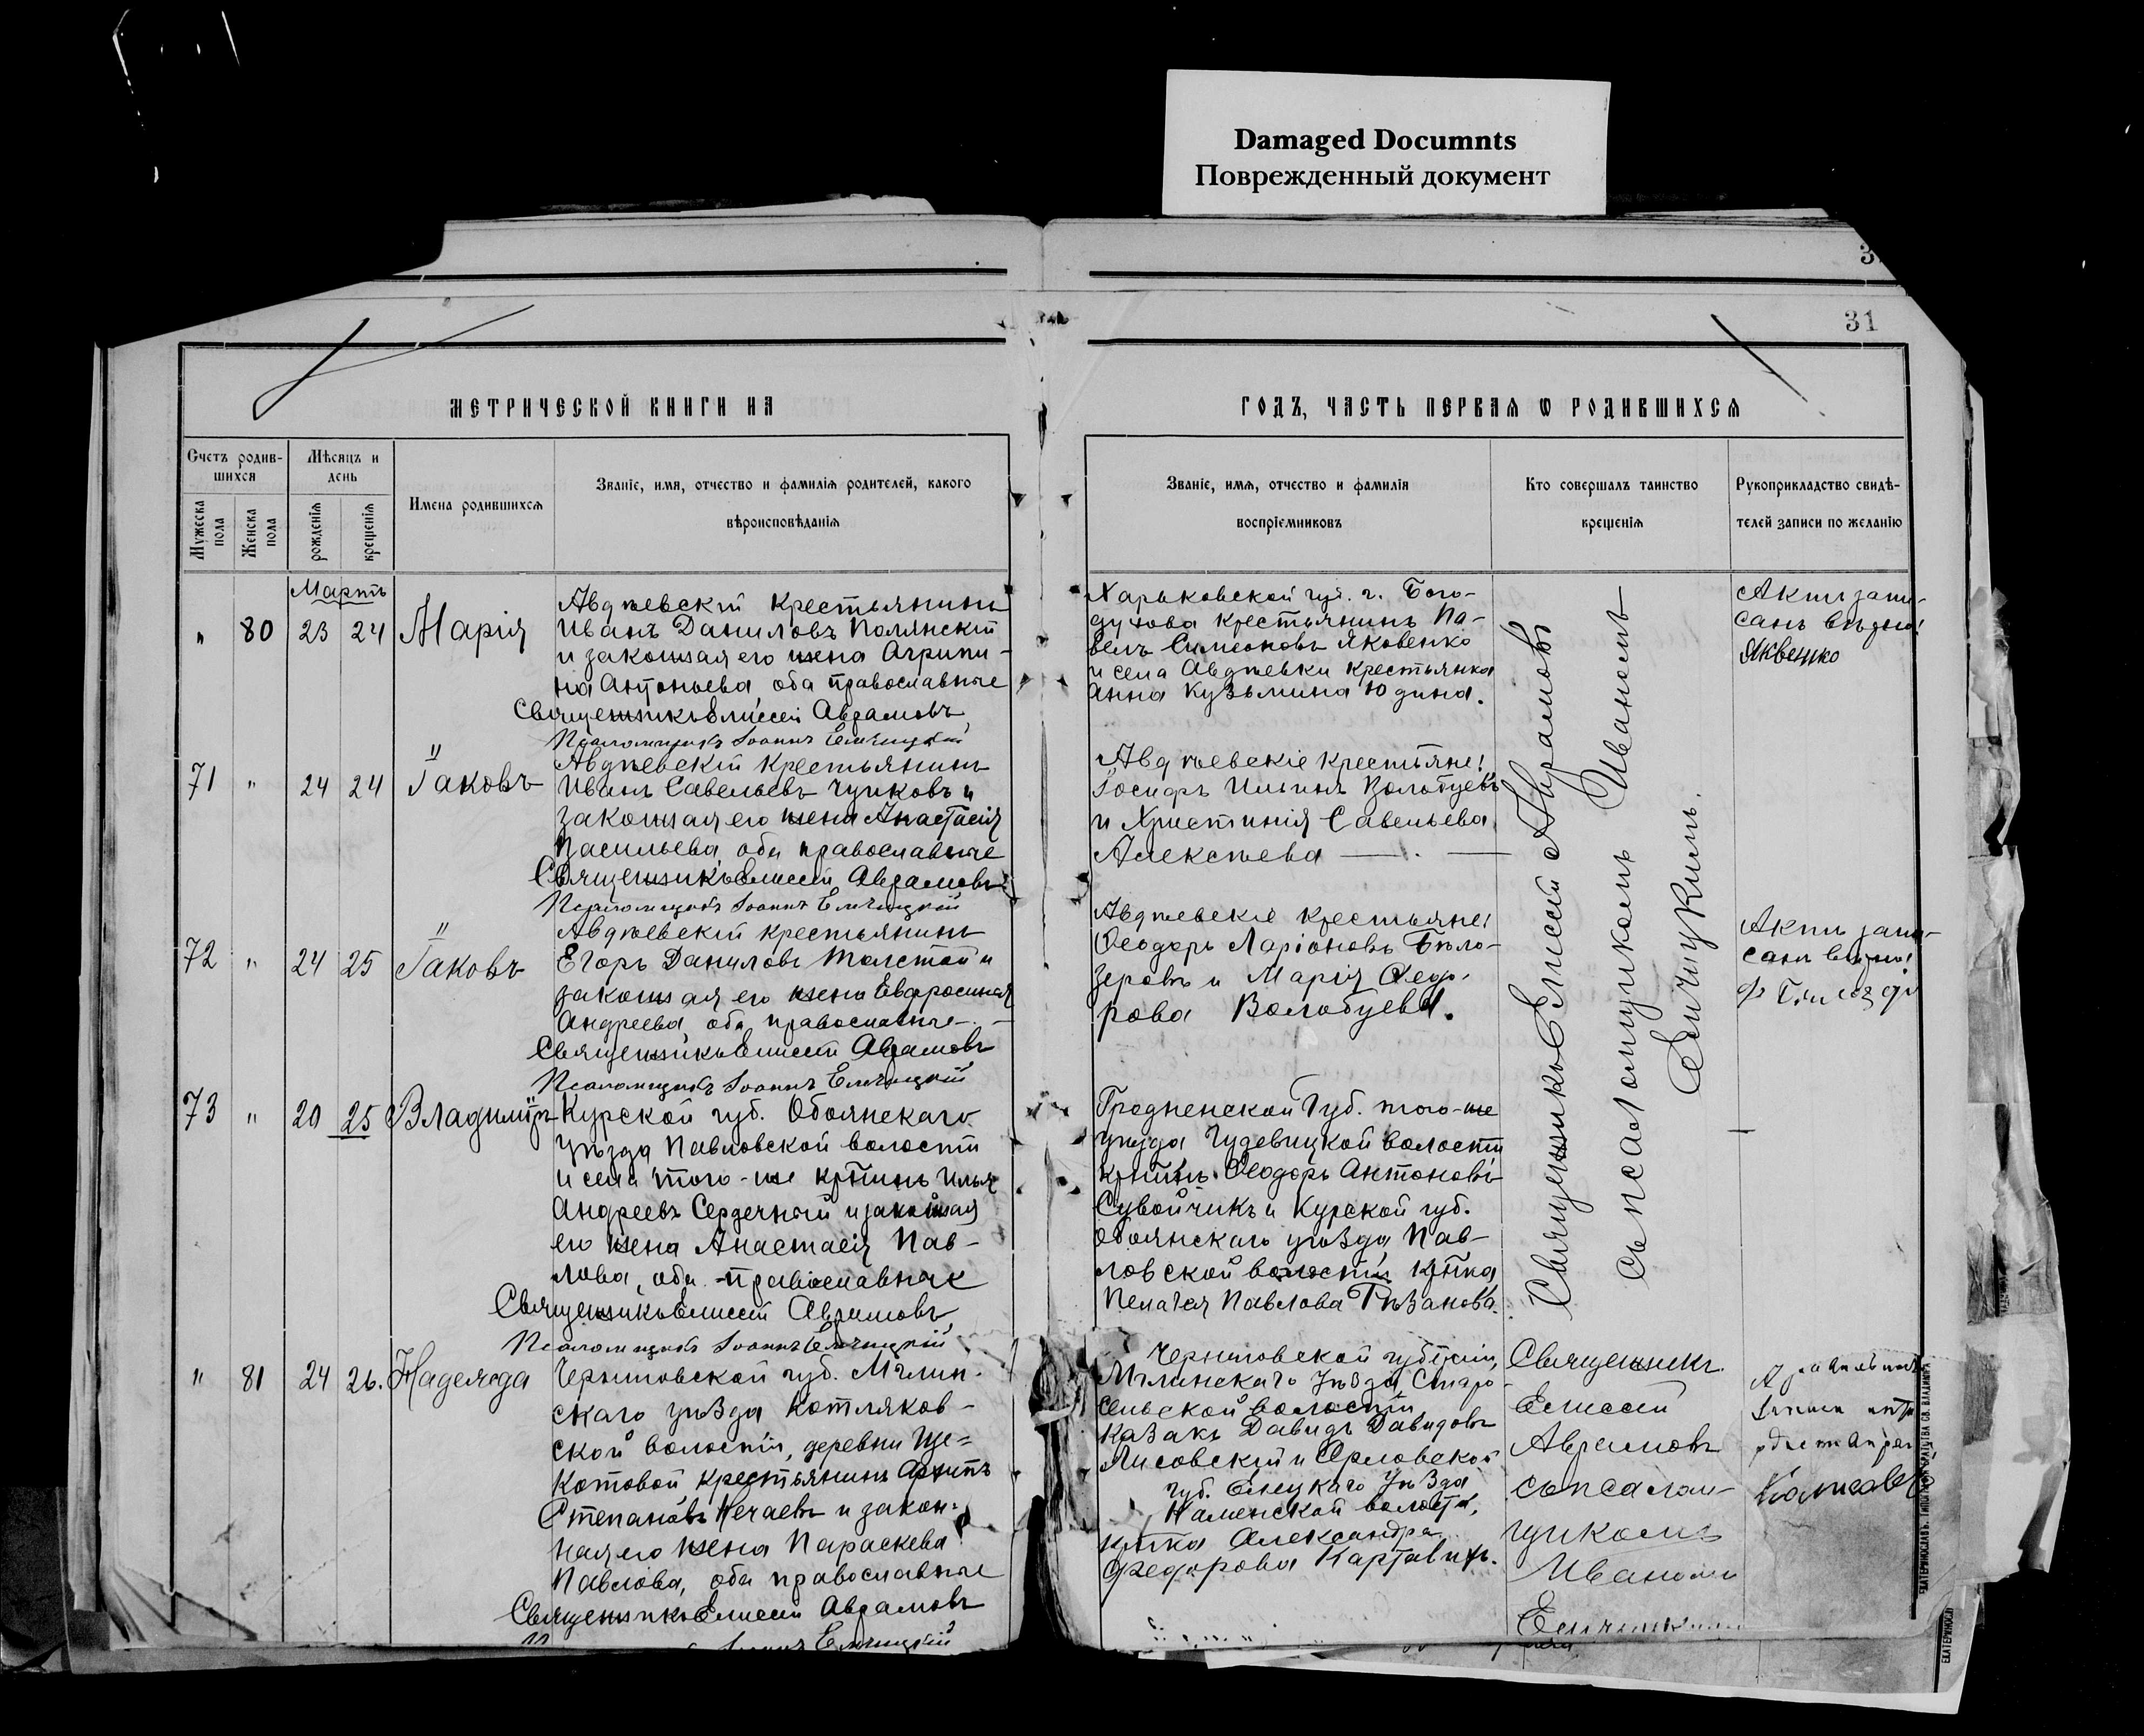 Damaged Documnts
Поврежденный документ
31
МЕТРИЧЕСКОЙ КНИГИ НА
ГОДЪ, ЧАСТЬ ПЕРВАЯ Ѡ РОДИВШИХСЯ
Счетъ родив-
шихся
Мѣсяцъ и
день
Мужеска пола
Женска пола
рожденія
крещенія
Имена родившихся
Званіе, имя, отчество и фамилія родителей, какого
вѣроисповѣданія
Званіе, имя, отчество и фамилія
воспріемниковъ
Кто совершалъ таинство
крещенія
Рукоприкладство свидѣ-
телей записи по желанію
Мартъ
" 80 23 24 Марія
Авдѣевскій крестьянинъ
Иванъ Даниловъ Полянскій
и законная его жена Агрипи-
на Антоньева, оба православные
Священникъ Елисей Аврамовъ
Псаломщикъ Іоаннъ Елчицкій
Харьковской губ. г. Бого-
духова крестьянинъ Па-
велъ Симеоновъ Яковенко
и села Авдѣевки крестьянка
Анна Кузьмина Юдина.
Актъ запи-
санъ вѣрно!
71 " 24 24 Іаковъ
Авдѣевскій крестьянинъ
Иванъ Савельевъ Чупковъ и
законная его жена Анастасія
Васильева, оба православные
Священникъ Елисей Аврамовъ
Псаломщикъ Іоаннъ Елчицкій
Авдѣевскіе крестьяне:
Іосифъ Ильинъ Волобуевъ
и Христинія Савельева
Алексѣева
72 " 24 25 Іаковъ
Авдѣевскій крестьянинъ
Егоръ Даниловъ Толстой и
законная его жена Евфросинія
Андреева, оба православные
Священникъ Елисей Аврамовъ
Псаломщикъ Іоаннъ Елчицкій
Авдѣевскіе крестьяне:
Ѳеодоръ Ларіоновъ Бѣло-
зеровъ и Марія Ѳеодо-
рова Волобуева.
Актъ запи-
санъ вѣрно!
73 " 20 25 Владиміръ
Курской губ. Обоянскаго
уѣзда Павловской волости
и села того-же кр̃тинъ Илья
Андреевъ Сердечный и законная
его жена Анастасія Пав-
лова, оба православные
Священникъ Елисей Аврамовъ
Псаломщикъ Іоаннъ Елчицкій
Гродненской губ. того-же
уѣзда Гудевицкой волости
кр̃тинъ Ѳеодоръ Антоновъ
Сувойчикъ и Курской губ.
Обоянскаго уѣзда Пав-
ловской волости кр̃тка
Пелагея Павлова Рѣзанова.
Священникъ Елисей Аврамовъ
съ псаломщикомъ Иваномъ
Елчицкимъ.
" 81 24 26. Надежда
Черниговской губ. Мглин-
скаго уѣзда Котляков-
ской волости, деревни Ще-
котовой крестьянинъ Архипъ
Степановъ Нечаевъ и закон-
ная его жена Параскева
Павлова, оба православные
Священникъ Елисей Аврамовъ
Іоаннъ Елчицкій
Черниговской губерніи,
Мглинскаго уѣзда, Старо-
сельской волости
казакъ Давидъ Давидовъ
Лисовскій и Орловской
губ. Елецкаго уѣзда
Каменской волости,
кр̃тка Александра
Федорова
Священникъ
Елисей
Аврамовъ
съ псалом-
щикомъ
Иваномъ
Елчицкимъ